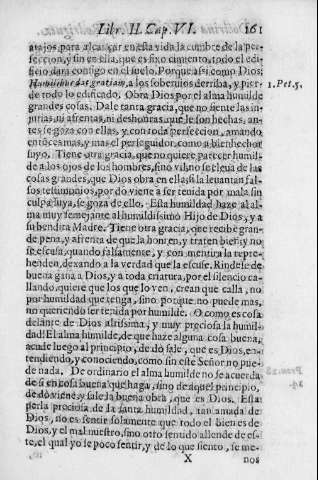 Libr. II. Cap. VI. 161
atajos, para alcançar en esta vida la cumbre de la per-
feccion, y sin en ella, que es fixo cimiento, todo el edi-
ficio dara contigo en el suelo. Porque assi como Dios,
Humilibus dat gratiam, a los soberuios derriba, y pier- 1. Pet. 5.
de todo lo edificado. Obra Dios por el alma humilde
grandes cosas. Dale tanta gracia, que no siente las in-
jurias, ni afrentas, ni deshonras, que le son hechas, an-
tes se goza con ellas, y con toda perfeccion, amando
entonces mas, y mas el perseguidor, como a bienhechor
suyo. Tiene otra gracia, que no quiere parecer humil-
de a los ojos de los hombres, sino vil, no se leua de las
cosas grandes, que Dios obra en ella, si la leuantan fal-
sos testimonios, por do viene a ser tenida por mala sin
culpa suya, se goza de ello. Esta humildad haze al al-
ma muy semejante al humildissimo Hijo de Dios, y a
su bendita Madre. Tiene otra gracia, que recibe gran-
de pena, y afrenta de que la honren, y traten bien, y no
se escusa, quando falsamente, y con mentira la repre-
henden, dexando a la verdad que la escuse. Rindese de
buena gana a Dios, y a toda criatura, por el silencio ca-
llando, quiere que los que lo ven, crean que calla, no
por humildad que tenga, sino porque no puede mas,
no queriendo ser tenida por humilde. O como es cosa
delante de Dios altissima, y muy preciosa la humil-
dad! El alma humilde, de que haze alguna cosa buena,
acude luego al principio, de do sale, que es Dios, en-
tendiendo, y conociendo, como sin este Señor no pue-
de nada. De ordinario el alma humilde no se acuerda
de si en cosa buena que haga, sino de aquel principio,
de do viene, y sale la buena obra, que es Dios. Esta
perla preciosa de la santa humildad, tan amada de
Dios, no es sentir solamente que todo el bien es de
Dios, y el mal nuestro, sino otro sentido allende de es-
te, el qual yo se poco sentir, y de lo que siento, se me-
X nos